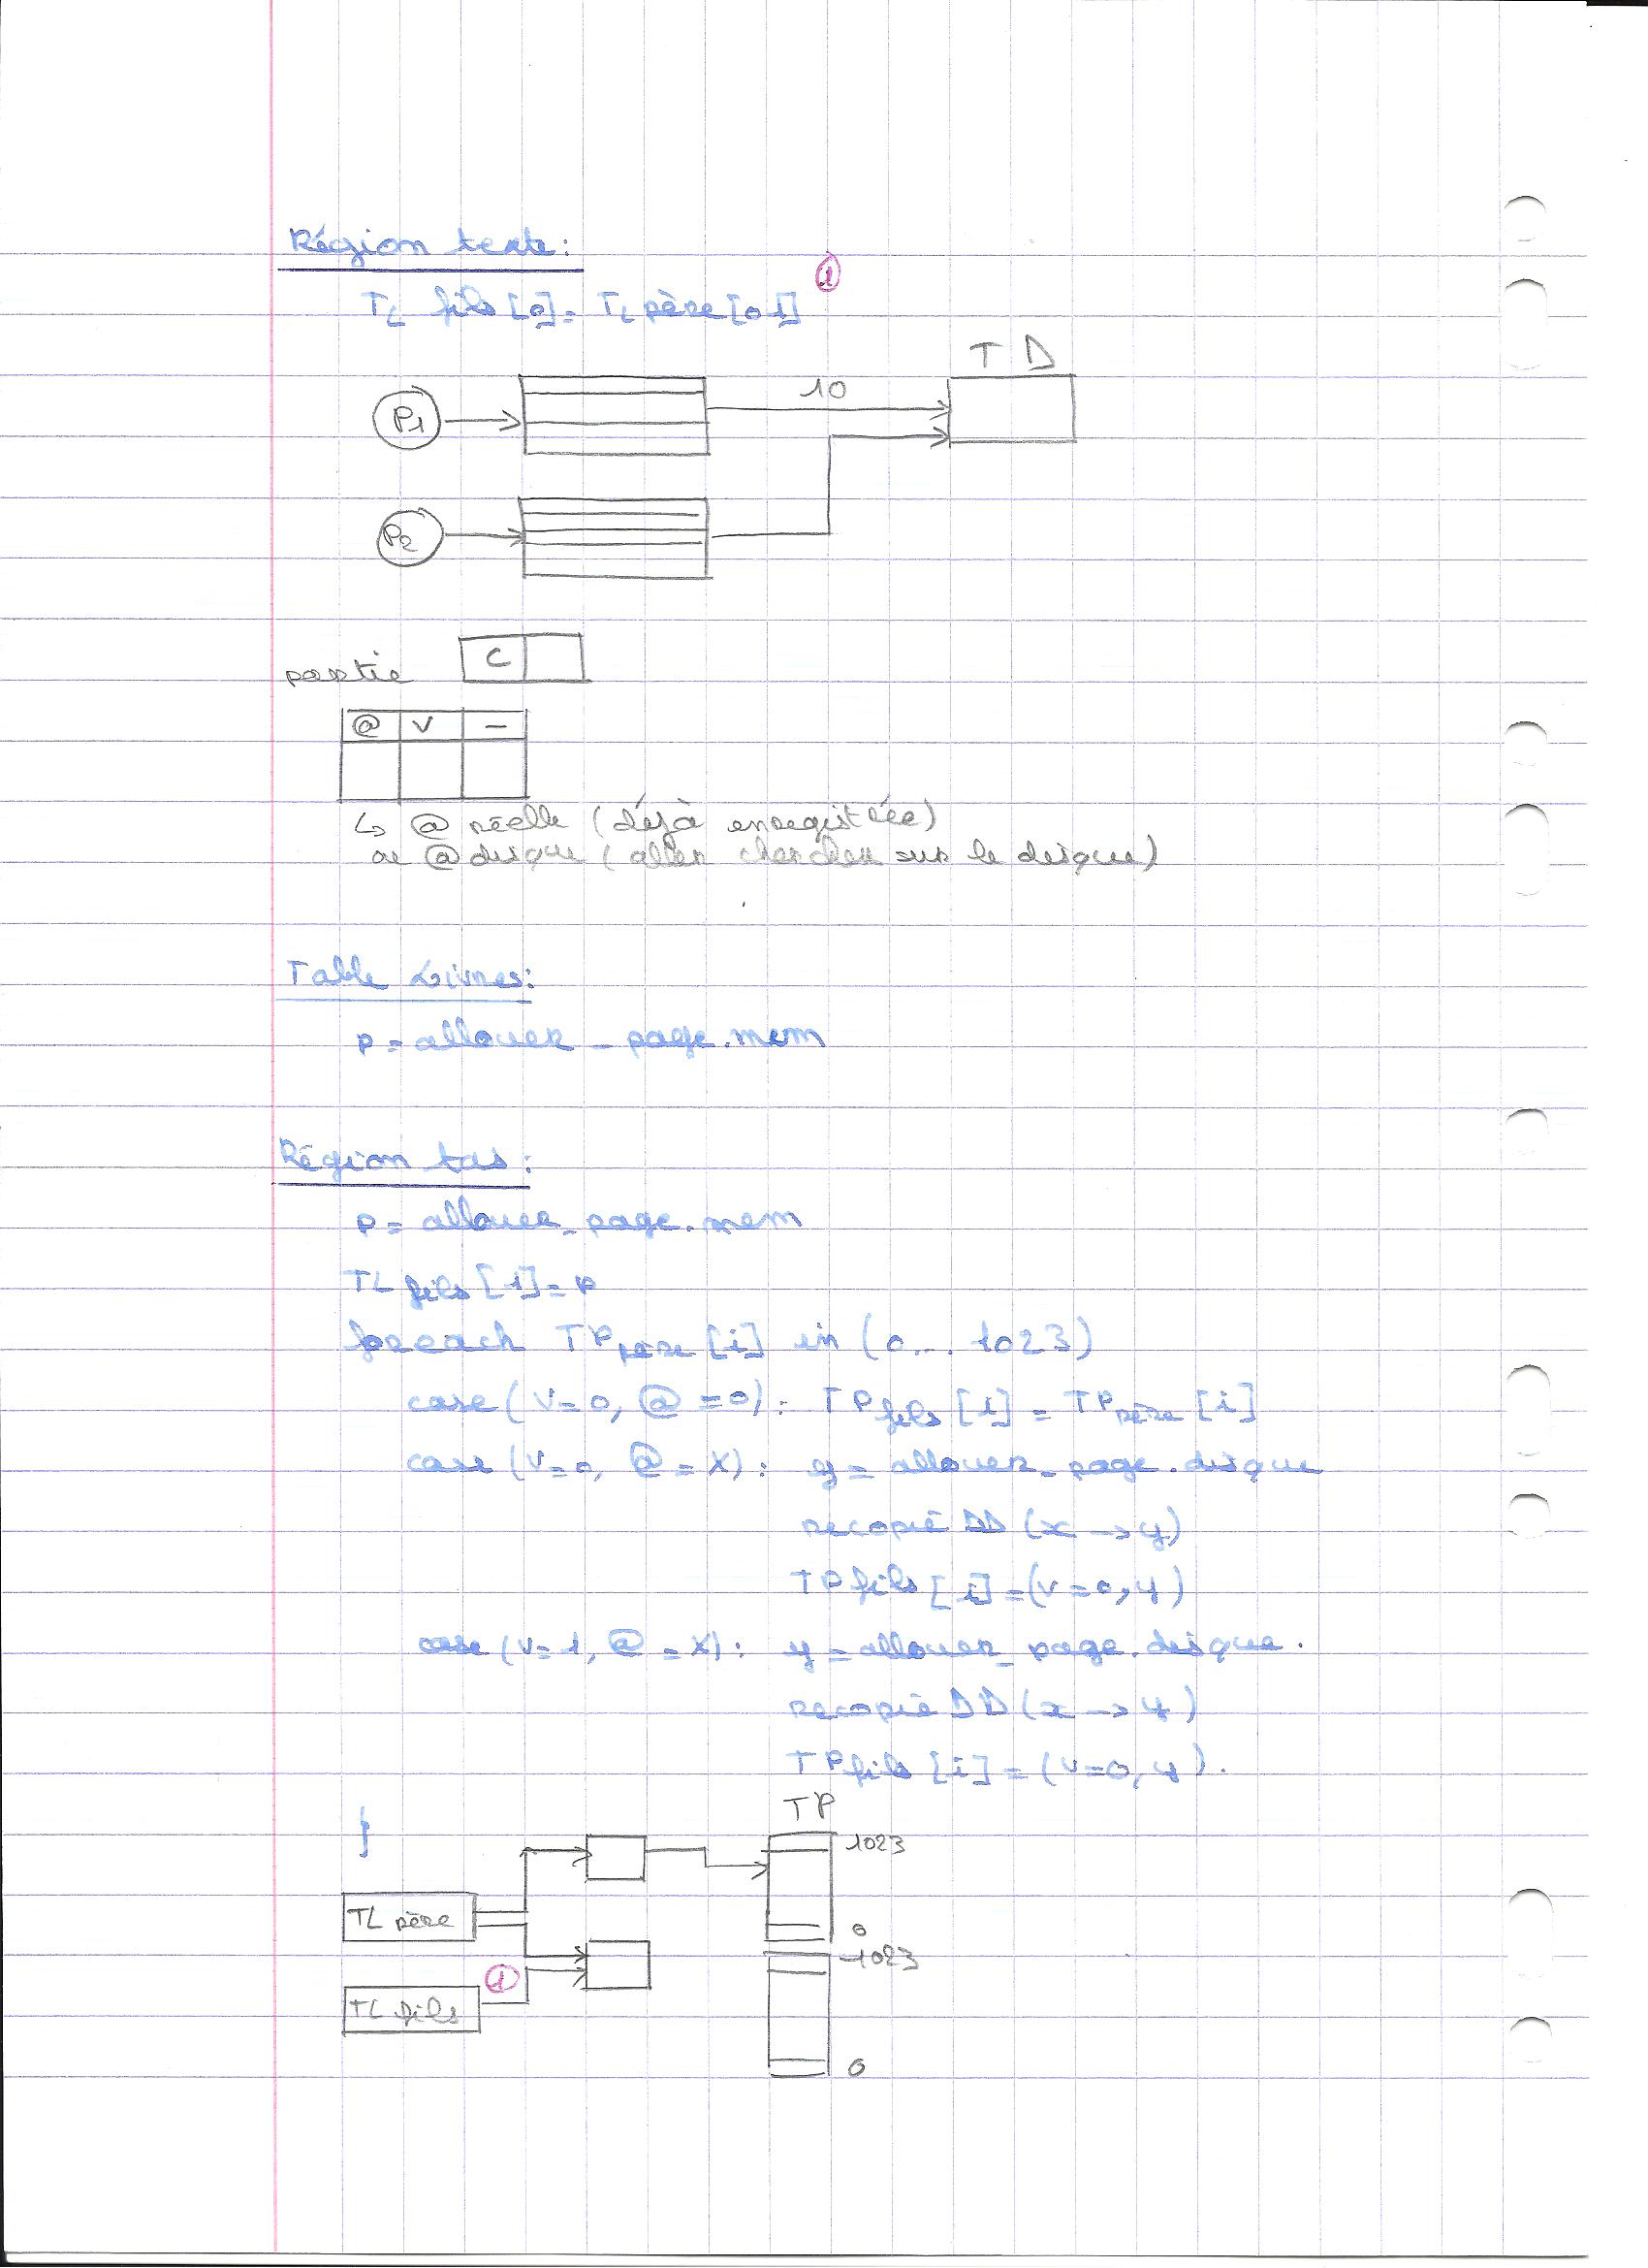 Région texte:
①
TL fils [0] = TL père [01]
T D
10
P1
P2
partie C
@ V –
↳ @ réelle (déjà enregistrée)
ou @ disque (aller chercher sur le disque)
Table Livres:
p = allouer _ page.mem
Région tas:
p = allouer _ page.mem
TL fils [1] = p
foreach TP père [i] in (0... 1023)
case (V=0, @ =0) : TP fils [i] = TP père [i]
case (V=0, @ = X) : y = allouer _ page.disque
recopie DD (x → y)
TP fils [i] = (v=0, y)
case (V=1, @ = X) : y = allouer _ page.disque.
recopie DD (x → y)
TP fils [i] = (v=0, y).
}
TP
1023
TL père
0
1023
①
TL fils
0